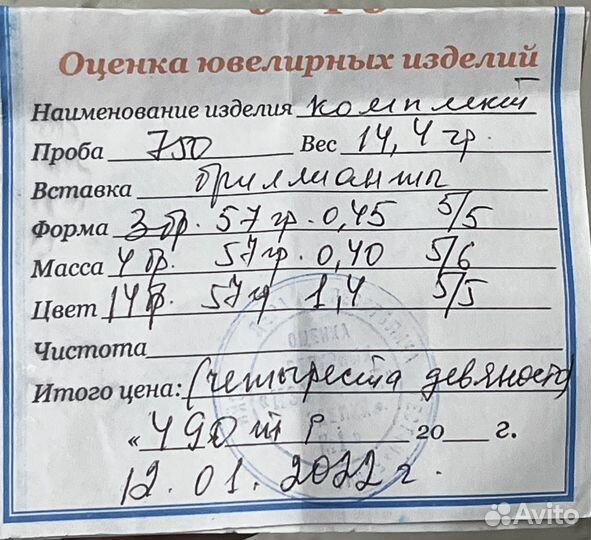 Оценка ювелирных изделий
Наименование изделия комплект
Проба 750 Вес 14,4 гр.
Вставка бриллианты
Форма 3бр. 57 гр. 0,45 5/5
Масса 4 бр. 57 гр. 0,40 5/6
Цвет 14бр. 57 гр 1,4 5/5
Чистота
Итого цена: (четыреста девяносто)
« 490 т р. 20 г.
12.01.2022 г.
Avito